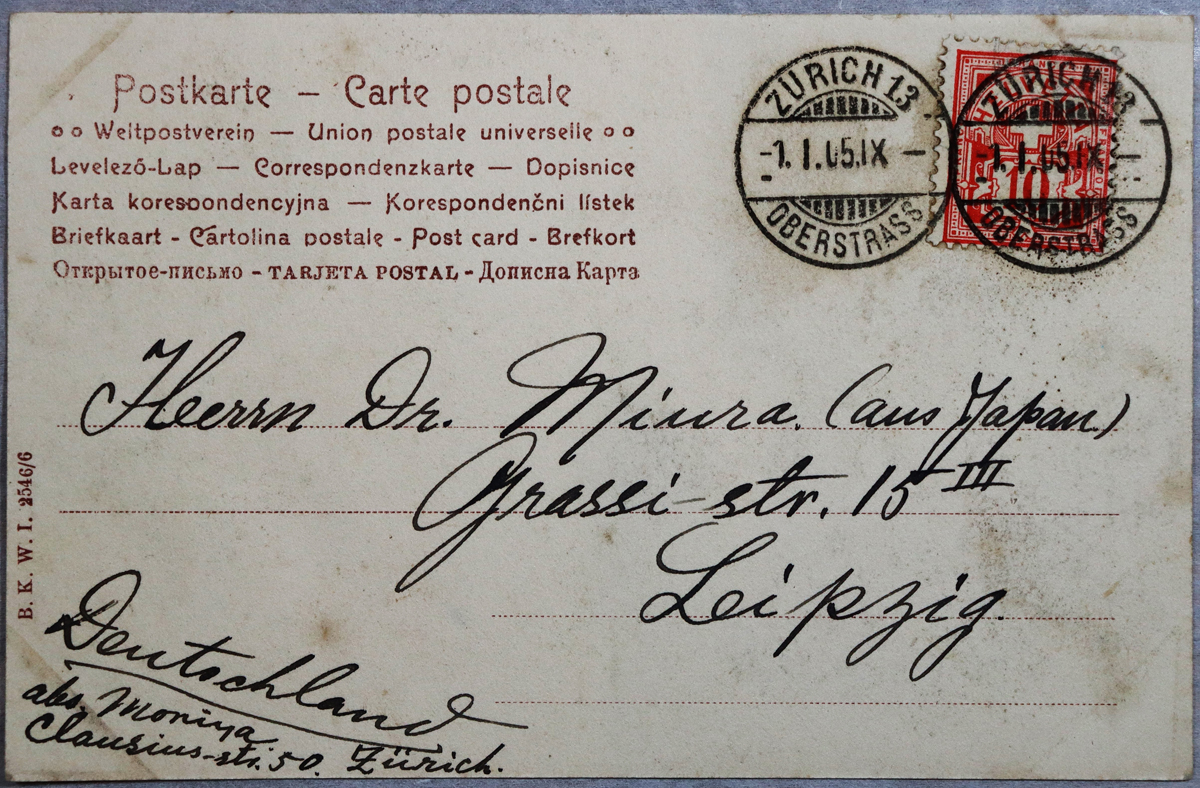 Postkarte – Carte postale
Weltpostverein — Union postale universelle
Levelező-Lap — Correspondenzkarte — Dopisnice
Karta korespondencyjna — Korespondenčni lístek
Briefkaart - Cartolina postale - Post card - Brefkort
Открытое-письмо - TARJETA POSTAL - Дописна Карта
ZÜRICH 13
-1. I. 05.IX-
OBERSTRASS
ZÜRICH 13
-1. I. 05.IX-
OBERSTRASS
10
Herrn Dr. Miura. (aus Japan)
Grassi-str. 15 III
Leipzig.
Deutschland
abs. Moriya
Clausius-str. 50. Zürich.
B. K. W. I. 2546/6